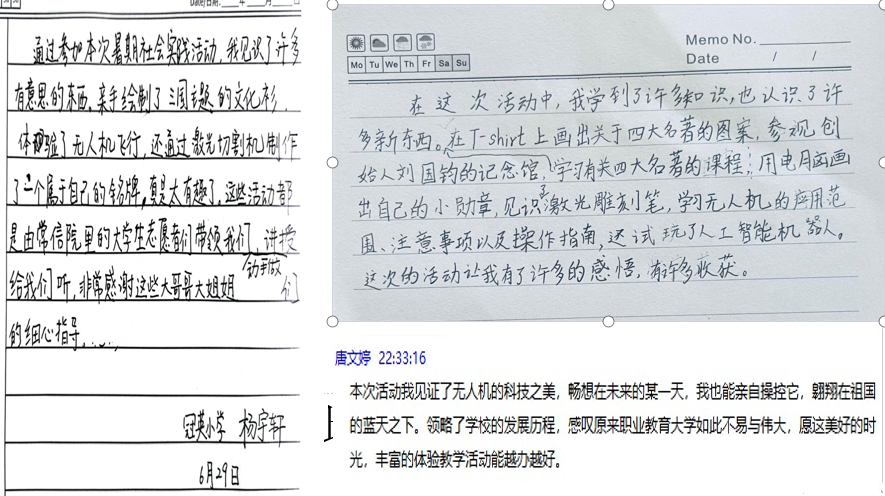 Date/日期: 年 月
通过参加本次暑期社会实践活动,我见识了许多
有意思的东西,亲手绘制了三国主题的文化衫,
体验了无人机飞行,还通过激光切割机制作
了一个属于自己的铭牌,真是太有趣了,这些活动都
是由常信院里的大学生志愿者们带领我们,讲授
给我们听,非常感谢这些大哥哥大姐姐们
的细心指导......
冠英小学 杨宇轩
6月29日
Memo No.
Mo Tu We Th Fr Sa Su
Date / /
在这次活动中,我学到了许多知识,也认识了许
多新东西。在T-shirt上画出关于四大名著的图案,参观创
始人刘国钧的记念馆,学习有关四大名著的课程;用电月函画
出自己的小勋章,见识了激光雕刻笔,学习无人机的应用范
围、注意事项以及操作指南,还试玩了人工智能机器人。
这次的活动让我有了许多的感悟,有许多收获。
唐文婷 22:33:16
本次活动我见证了无人机的科技之美,畅想在未来的某一天,我也能亲自操控它,翱翔在祖国
的蓝天之下。领略了学校的发展历程,感叹原来职业教育大学如此不易与伟大,愿这美好的时
光,丰富的体验教学活动能越办越好。